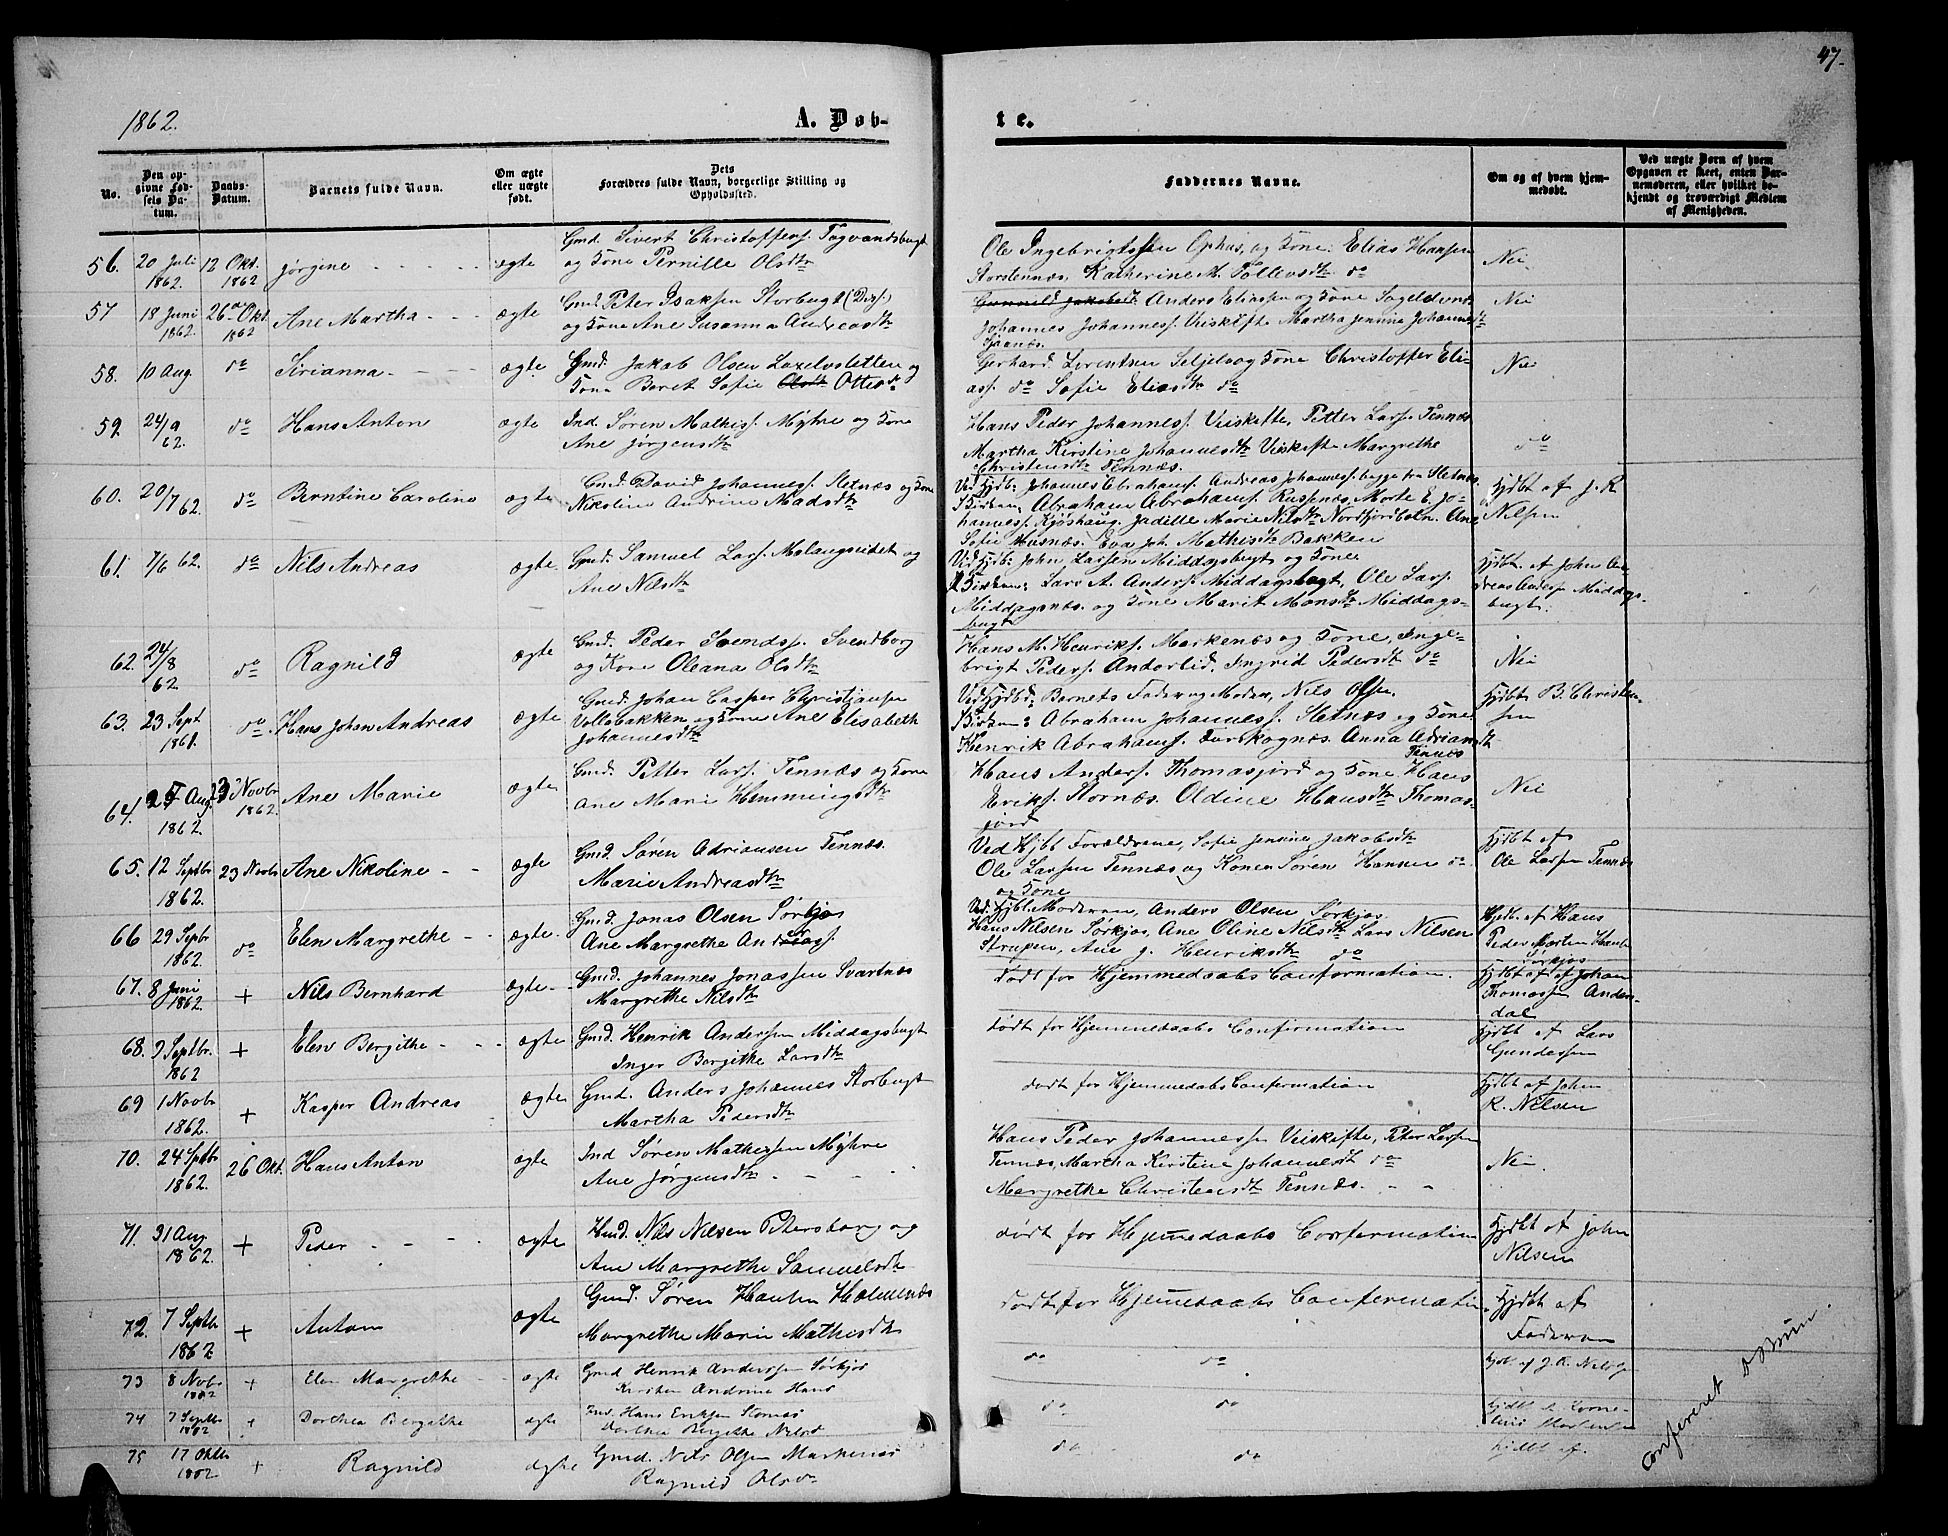 47.
1862.
A. Døb-
te.
No.
Den opgivne Fødsels Datum.
Daabs-Datum.
Barnets fulde Navn.
Om ægte eller uægte født.
Dets Forældres fulde Navn, borgerlige Stilling og Opholdssted.
Faddernes Navne.
Om og af hvem hjemmedøbt.
Ved uægte Børn af hvem Opgaven er skeet, enten Barnemoderen, eller hvilket bekjendt og troværdigt Medlem af Menigheden.
56. 20 Juli 1862. 12 Okt. 1862 Jørgine - - - - ægte Gmd. Sivert Christoffers. Tagvandsbugt
og Kone Pernille Olsdtr
Ole Ingebrigtssen Ophus, og Kone. Elias Hansen
Storstennæs, Katherine M. Tollevsdtr do
Nei
57 18 Juni 1862. 26 Okt. 1862 Ane Martha - - - ægte Gmd. Peter Isaksen Storbugt (Divs.)
og Kone Ane Susanna Andreasdtr
Gunnild Jakobsdt Anders Eliassen og Kone
Johannes Johanness. Veiskifte Martha Jennine Johannesdtr
Nei
58. 10 Aug. do Sirianna - - - - ægte Gmd. Jakob Olsen Laxelvsletten og
Kone Beret Sofie Olsdtr Ottesdr
Gerhard Lorentsen Seljelv og Kone Christoffer Eli-
ass. do Sofie Eliasdtr do
Nei
59. 24/9 62. do Hans Anton ægte Ind. Søren Mathiss. Myhre og Kone
Ane Jørgensdtr
Hans Peder Johanness. Veiskifte, Petter Lars. Tennæs
Martha Kirstine Johannesdtr Veiskifte Margrethe
Christensdtr Tennæs.
do
60. 20/7 62. do Berntine Caroline ægte Gmd. David Johanness. Sletnæs og Kone
Nikoline Andrine Madsdtr
Ved Hjdb: Johannes Abrahams. Andreas Johanness. begge fra Sletnæs.
I Kirken: Abraham Abrahams. Russenæs, Morte E. Jo-
hanness. Kjøshaug. Jadille Marie Nilsdtr Nordfjordbotn. Ane
Sofie Husnæs. Eva Joh. Mathisdtr Bakken
Hjdbt af J. R.
Nilsen
61. 7/6 62. do Nils Andreas ægte Gmd. Samuel Lars. Malangseidet og
Ane Nilsdtr
Ved Hjdb: John Larssen Middagsbugt og Kone
I Kirken: Lars A. Anders. Middagsbugt, Ole Lars.
Middagsnæs. og Kone Marit Monsdtr Middags-
bugt
Hjdbt. af John An-
dreas Anders. Middags-
bugt.
62. 24/8 62 do Ragnild ægte Gmd. Peder Svends. Svendborg
og Kone Oleana Olsdtr
Hans M. Henriks. Markenæs og Kone, Inge-
brigt Peders. Andorlid. Ingrid Pedersdtr do
Nei
63. 23 Sept 1861. do Hans Johan Andreas ægte Gmd. Johan Casper Christiansen
Vollabakken og Kone Ane Elisabeth
Johannesdtr
Ved Hjdbd: Barnets Fader og Moder, Nils Olsen.
I Kirken: Abraham Johanness. Sletnæs og Kone.
Henrik Abrahams. Anna Adriandtr
Tennæs
Hjdbt B. Christen-
sen
64. 25 Aug. 1862. 23 Novbr 1862. Ane Marie ægte Gmd. Petter Lars. Tennæs og Kone
Ane Marie Hemmingsdtr
Hans Anders. Thomasjord og Kone Hans
Eriks. Stornæs. Oldine Hansdtr Thomas-
jord
Nei
65. 12 Septbr 1862. 23 Novbr Ane Nikoline - - ægte Gmd. Søren Adriansen Tennæs.
Marie Andreasdtr
Ved Hjbt Forældrene, Sofie Jennine Jakobsdtr
Ole Larssen Tennæs og Konen Søren Hansen do
og Kone
Hjdbt af
Ole Larssen Tennæs
66 29 Septbr 1862. do Elen Margrethe - - ægte. Gmd. Jonas Olsen Sørkjos
Ane Margrethe Anders.
Ved. Hjbt. Moderen, Anders Olsen Sørkjos.
Hans Nilsen Sørkjos, Ane Oline Nilsdtr Lars Nilsen
Strupen, Ane J. Henriksdtr do
Hjdb. af Hans
Peder Morten
Sørkjos
67. 8 Juni 1862. + Nils Bernhard ægte - Gmd. Johannes Jonassen Svartnæs
Margrethe Nilsdtr
Dødt for Hjemmedaabs Confirmation.
Hjdbt af Johan
Thomassen Anders-
dal
68. 9 Septbr. 1862 + Elen Bergithe - - - ægte Gmd. Henrik Andersen Middagsbugt
Inger Bergitte Larsdtr
Dødt for Hjemmedaabs Confirmation
Hjdbt af Lars
Gundersen
69 1 Novbr 1862. + Kasper Andreas ægte Gmd. Anders Johannes Storbugt
Martha Pedersdtr
dødt for Hjemmedaabs Confirmation
Hjdbt af John
R. Nilsen
70. 24 Septbr 1862. 26 Okt. Hans Anton ægte Ind Søren Mathesen Myhre
Ane Jørgensdtr - - -
Hans Peder Johannessen Veiskifte, Peter Larsen
Tennæs, Martha Kirstine Johannesdtr do
Margrethe Christensdtr Tennæs. - -
Nei.
71. 31 Aug 1862. + Peder - - - ægte Hmd. Nils Nilsen Petersborg og
Ane Margrethe Samuelsdtr
dødt for Hjemedaabs Confermation
Hjdbt af John
Nilsen
72. 7 Septbr 1862 + Anton ægte Gmd. Søren Hansen Holmenæs
Margrethe Marie Mathisdtr
dødt for Hjemedaabs Confermation
Hjdbt af
Faderen
73 8 Novbr 1862 + Elen Margrethe - - ægte Gmd Henrik Anderssen Sørkjos
Kirsten Andrine Hans
do do
hjdb. af J. R. Nilsen
74 7 Septbr 1862 + Dorthea Bergitthe ægte Ind. Hans Eriksen Stornæs
Dorthea Bergitte Nilsd
do do
hjdbt af Korne-
lius Mortensen
75 17 Oktbr 1862 + Ragnild ægte Gmd. Nils Olsen Markenæs
Ragnild Olsdr
do do
hjdbt af.
Confereret